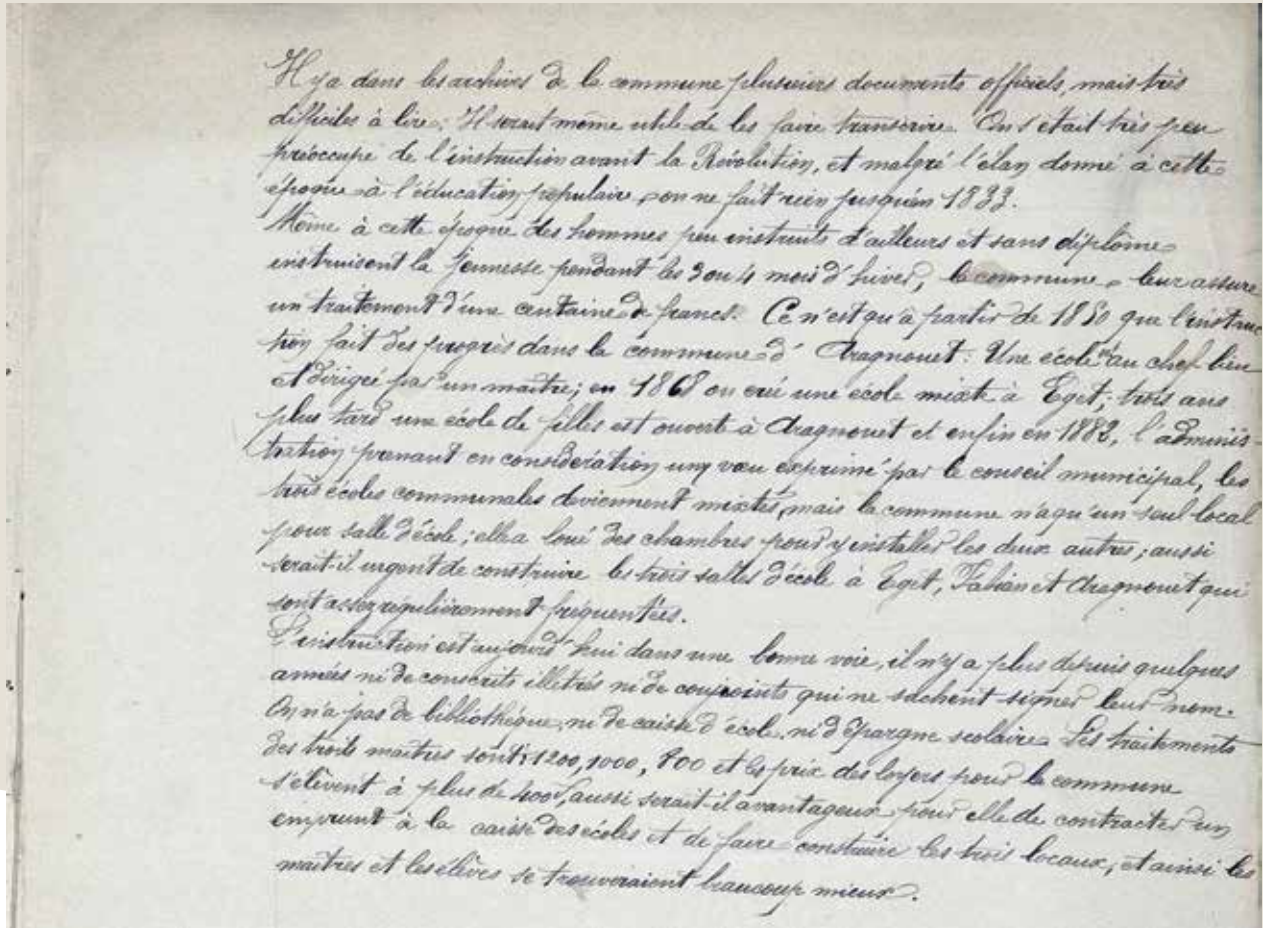 Il y a dans les archives de la commune plusieurs documents officiels, mais très
difficiles à lire. Il serait même utile de les faire transcrire. On s'était très peu
préoccupé de l'instruction avant la Révolution, et malgré l'élan donné à cette
époque à l'éducation populaire, on ne fait rien jusqu'en 1833.
Même à cette époque des hommes peu instruits d'ailleurs et sans diplôme
instruisent la jeunesse pendant les 3 ou 4 mois d'hiver, la commune leur assure
un traitement d'une centaine de francs. Ce n'est qu'à partir de 1850 que l'instruc
tion fait des progrès dans la commune d'Aragnouet : Une école au chef-lieu
est dirigée par un maître ; en 1868 on crée une école mixte à Eget ; trois ans
plus tard une école de filles est ouverte à Aragnouet et enfin en 1882, l'adminis-
tration prenant en considération un vœu exprimé par le conseil municipal, les
trois écoles communales deviennent mixtes, mais la commune n'a qu'un seul local
pour salle d'école ; elle a loué des chambres pour y installer les deux autres ; aussi
serait-il urgent de construire les trois salles d'école à Eget, Fabian et Aragnouet qui
sont assez régulièrement fréquentées.
L'instruction est aujourd'hui dans une bonne voie, il n'y a plus depuis quelques
années ni de conscrits illétrés ni de conjoints qui ne sachent signer leur nom.
On n'a pas de bibliothèque, ni de caisse d'école, ni d'épargne scolaire. Les traitements
des trois maîtres sont : 1200, 1000, et les prix des loyers pour la commune
s'élèvent à plus de 400f, aussi serait-il avantageux pour elle de contracter un
emprunt à la caisse des écoles et de faire construire les trois locaux, et ainsi les
maîtres et les élèves se trouveraient beaucoup mieux.